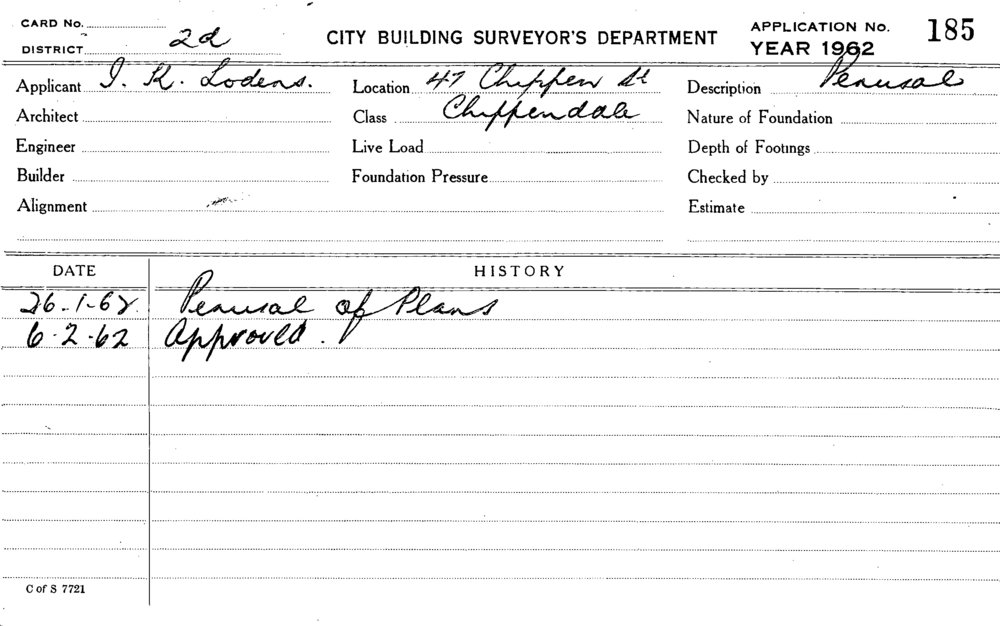 CARD No.
DISTRICT 2d
CITY BUILDING SURVEYOR'S DEPARTMENT
APPLICATION No. 185
YEAR 1962
Applicant I. K. Lodens.
Location 47 Chippen St
Description Perusal
Architect
Class Chippendale
Nature of Foundation
Engineer
Live Load
Depth of Footings
Builder
Foundation Pressure
Checked by
Alignment
Estimate
DATE HISTORY
26-1-62. Perusal of Plans
6-2-62 Approved.
C of S 7721